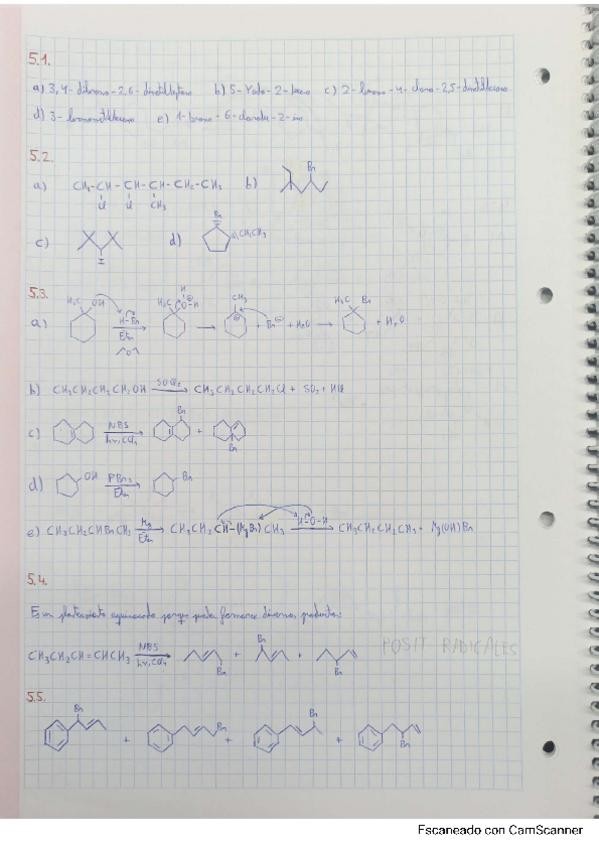 5.1.
a) 3,4-dibromo-2,6-dimetilheptano b) 5-Yodo-2-hexeno c) 2-bromo-4-cloro-2,5-dimetilhexano
d) 3-bromometilhexano e) 1-bromo-6-
5.2.
a) CH3-CH-CH-CH-CH2-CH3 b) Br
Cl Cl CH3
c) I d) Br CH2CH3
5.3.
a) H3C OH H-Br Eter H3C O-H H CH3 + Br⊖ + H2O H3C Br + H2O
b) CH3CH2CH2CH2OH SOCl2 CH3CH2CH2CH2Cl + SO2 + HCl
c) NBS hν, CCl4 Br + Br
d) OH PBr3 Eter Br
e) CH3CH2CHBrCH3 Mg Eter CH3CH2CH-(MgBr)CH3 H-O-H CH3CH2CH2CH3 + Mg(OH)Br
5.4.
Es un planteamiento equivocado porque puede formarse diversos productos:
CH3CH2CH=CHCH3 NBS hν, CCl4 Br + Br + Br POSIT RADICALES
5.5.
Br + Br + Br + Br
Escaneado con CamScanner